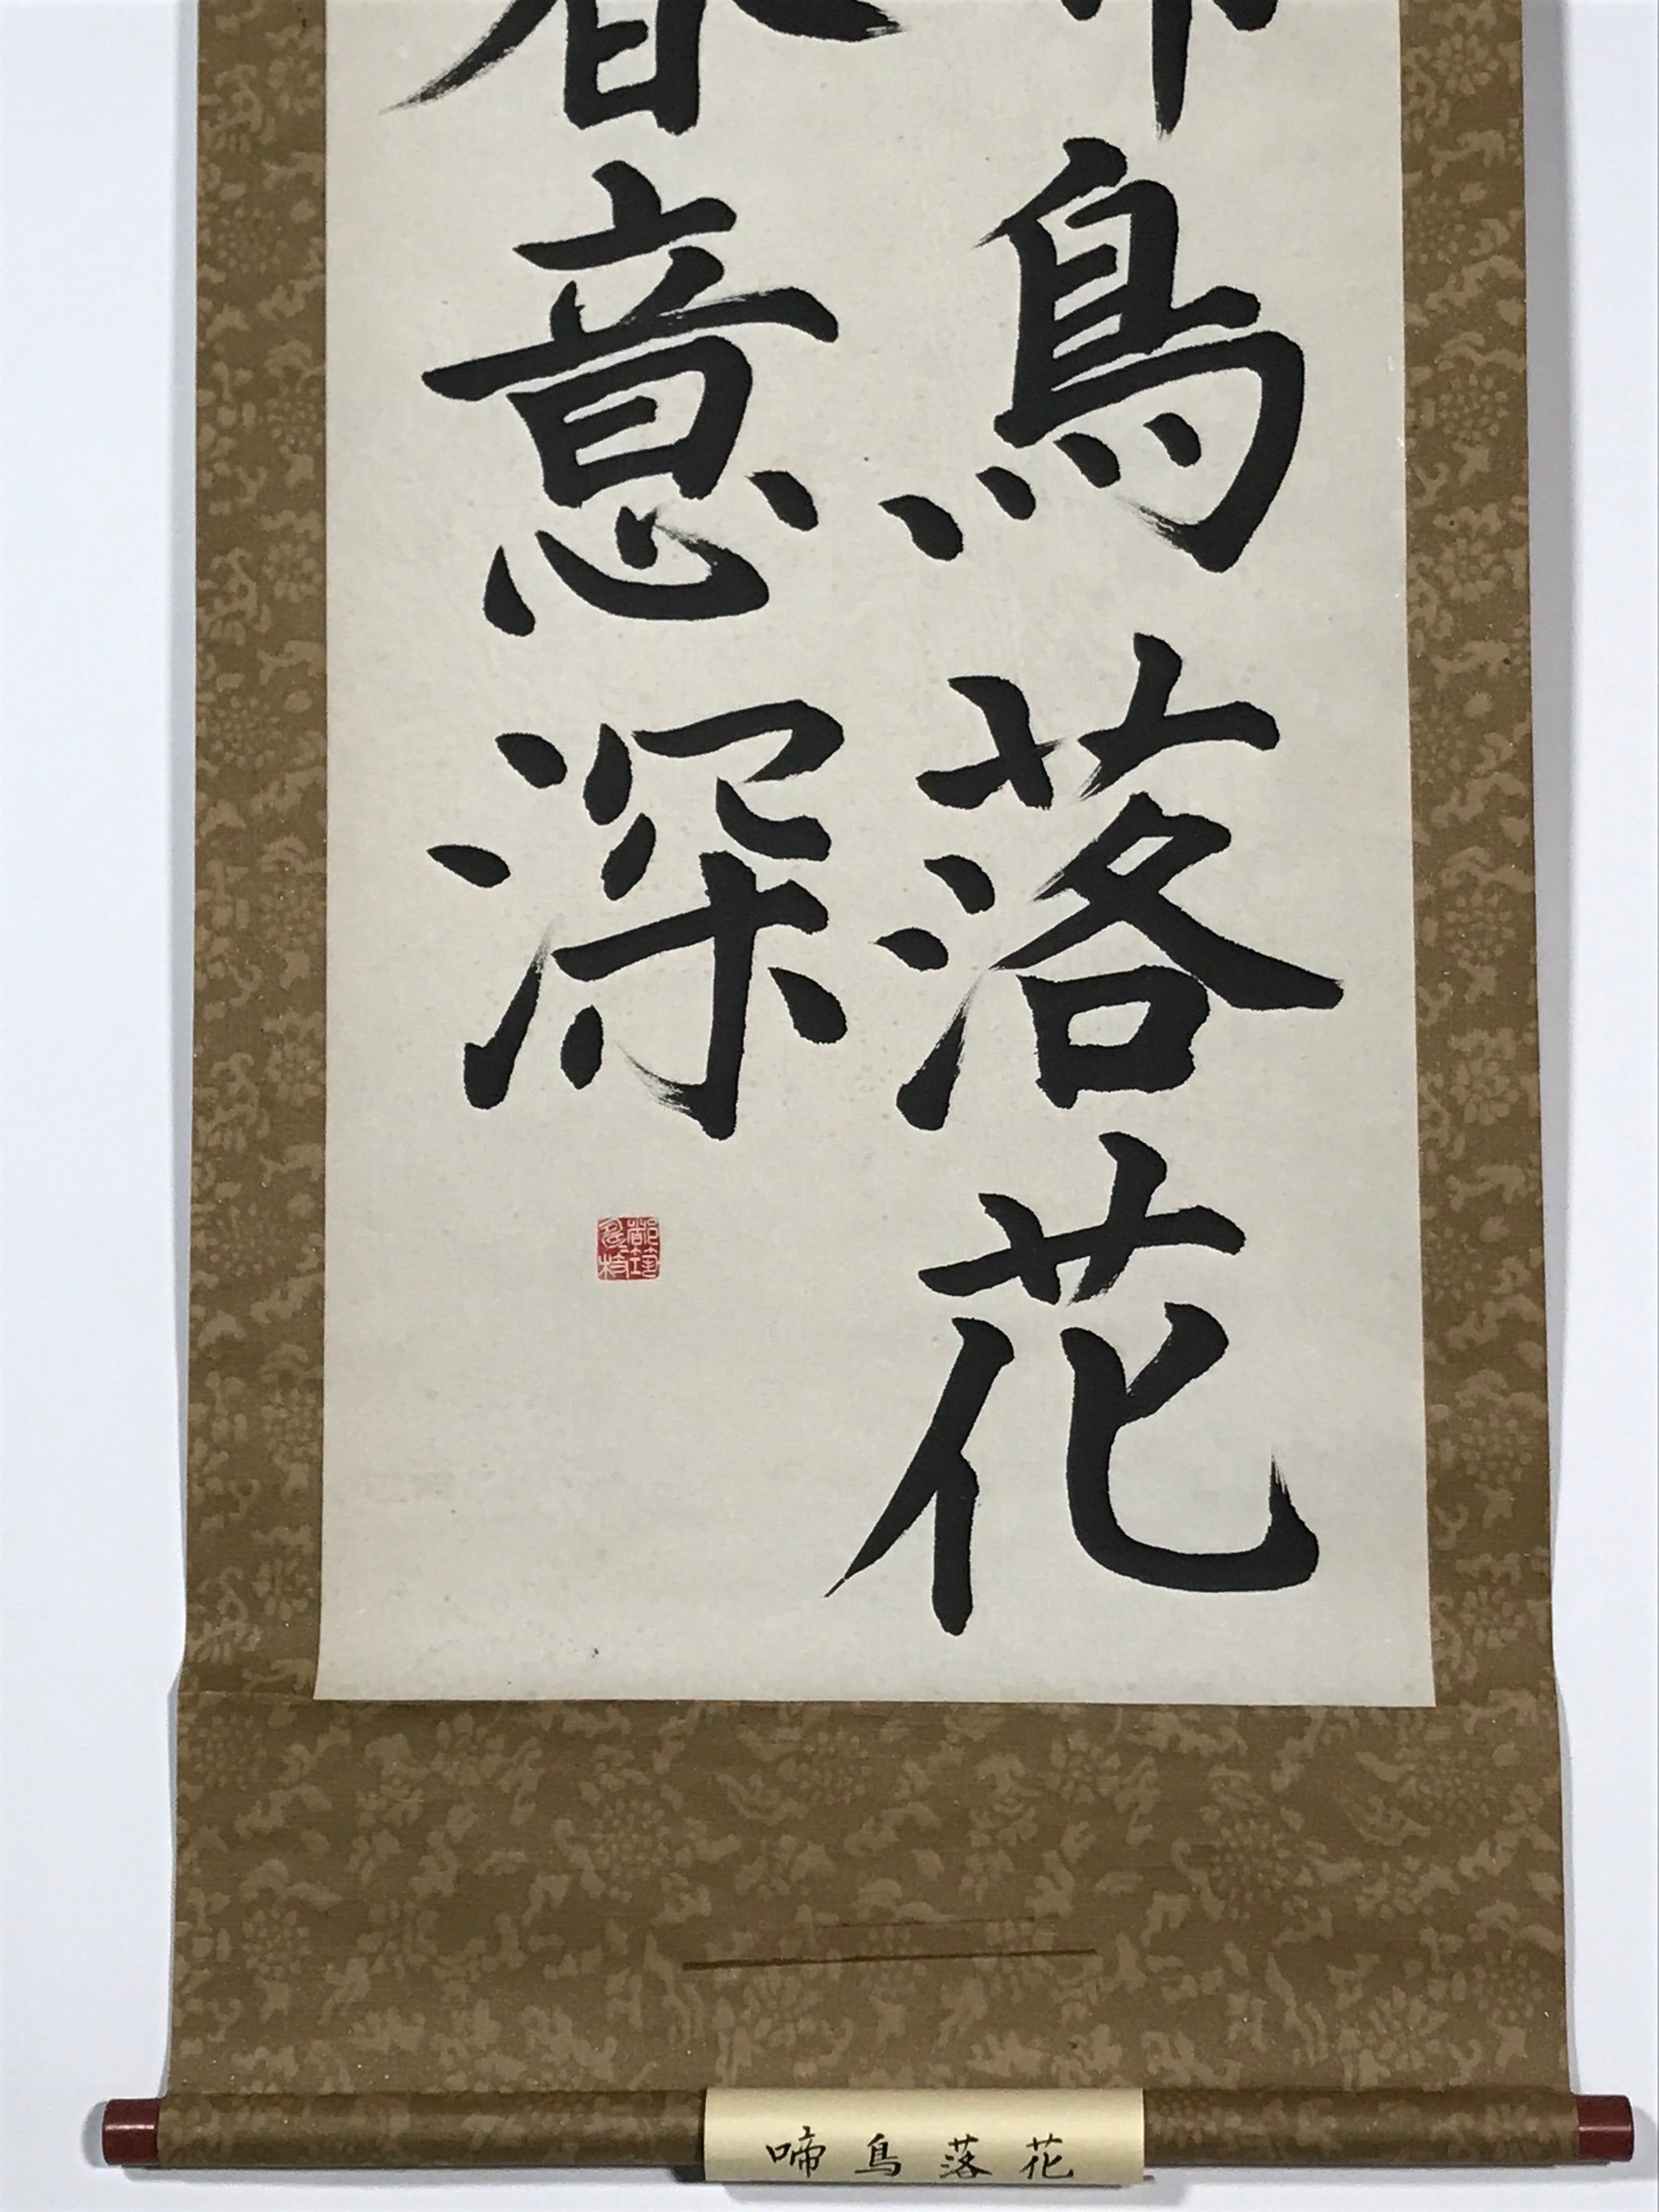 啼鳥落花
春意深
啼鳥落花